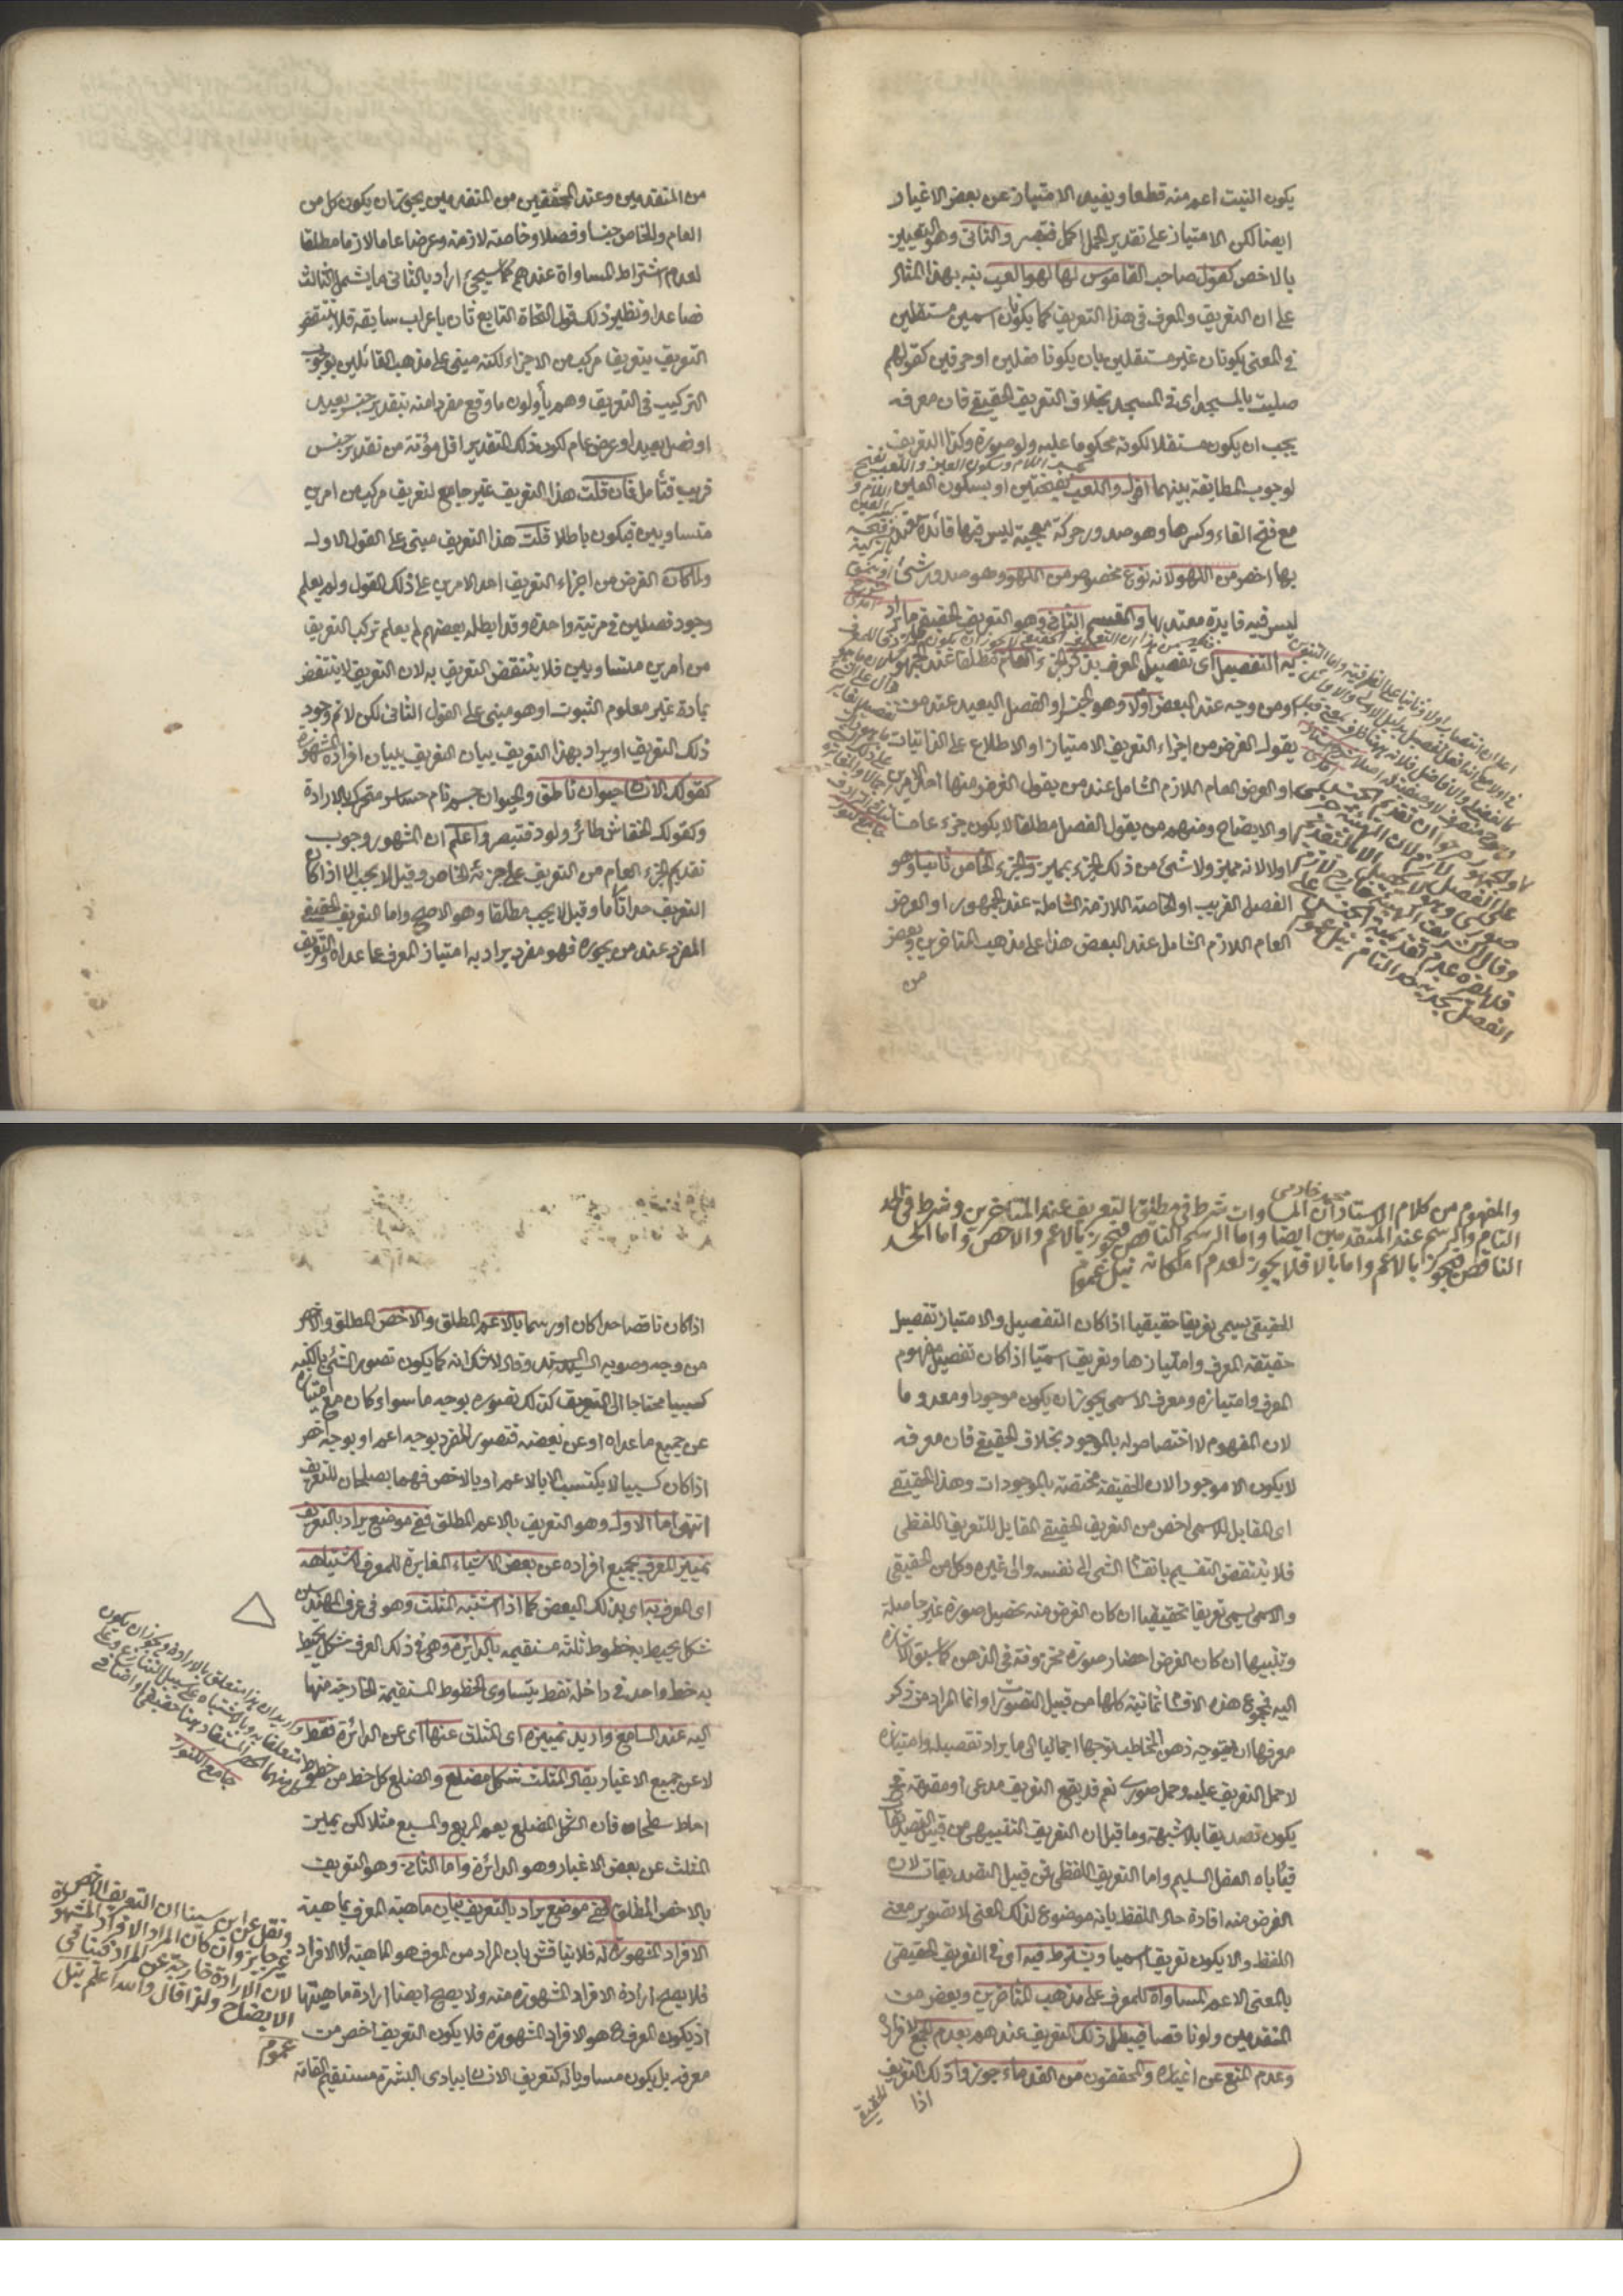 يكون النبت اعم منه قطعا ويفيد الامتياز عن بعض الاغيار
ايضا لكن الامتياز على تقدير الحمل اكمل فتبصر والثانى وهو التعيين
بالاخص كقول صاحب القاموس لها لهوا لعب نبه بهذا المثال
على ان التعريف والمعرف فى هذا التعريف كما يكونان اسمين مستقلين
فى المعنى يكونان غير مستقلين بان يكونا فعلين او حرفين كقولهم
صليت بالمسجد اى فى المسجد بخلاف التعريف الحقيقى فان معرفه
يجب ان يكون مستقلا لكونه محكوما عليه ولو صورة وكذا التعريف
لوجوب المطابقة بينهما اقول واللعب بفتحتين او بسكون العين
مع فتح الفاء وكسرها وهو صدور حركة عجيبة ليس فيها فائدة
بها اخص من اللهو لانه نوع مخصوص من اللهو وهو صدور شئ
ليس فيه فايدة معتد بها والقسم الثانى وهو التعريف الحقيقى ما يراد
به التفصيل اى تفصيل المعرف بذكر الجزء العام مطلقا عند الجمهور
ومن وجه عند البعض اولا وهو الجنس او الفصل البعيد عند من
يقول الغرض من اجزاء التعريف الامتياز او الاطلاع على الذاتيات
او العرض العام اللازم الشامل عند من يقول الغرض منها احد الامرين
او الايضاح ومنهم من يقول الفصل مطلقا لا يكون جزء عاما
اولا لانه مميز ولا شئ من ذلك الجزء بمميز والجزء الخاص ثانيا وهو
الفصل القريب او الخاصة اللازمة الشاملة عند الجمهور او العرض
العام اللازم الشامل عند البعض هذا على مذهب المتاخرين وبعض
من
من المتقدمين وعند المحققين من المتقدمين يجوز ان يكون كل من
العام والخاص جنسا وفصلا وخاصة لازمة وعرضا عاما لازما مطلقا
لعدم اشتراط المساواة عندهم كما سيجئ اراد بالثانى ما يشمل الثالث
فصاعدا ونظير ذلك قول النحاة التابع ثان باعراب سابقه فلا ينتقض
التعريف بتعريف مركب من الاجزاء لكنه مبنى على مذهب القائلين بوجوب
التركيب فى التعريف وهم يأولون ما وقع مفردا منه بتقدير جنس بعيد
او فصل بعيد او عرض عام لكون ذلك التقدير اقل مؤنة من تقدير جنس
قريب فتأمل فان قلت هذا التعريف غير جامع لتعريف مركب من امرين
متساويين فيكون باطلا قلت هذا التعريف مبنى على القول الاول
ولما كان الغرض من اجزاء التعريف احد الامرين على ذلك القول ولم يعلم
وجود فصلين فى مرتبة واحدة وقد ابطله بعضهم لم يعلم تركب التعريف
من امرين متساويين فلا ينتقض التعريف به لان التعريف لا ينتقض
بمادة غير معلوم الثبوت او هو مبنى على القول الثانى لكن لا نم وجود
ذلك التعريف او يراد بهذا التعريف بيان التعريف ببيان افراده المشهورة
كقولك الانسان حيوان ناطق والحيوان جسم نام حساس متحرك بالارادة
وكقولك الخفاش طائر ولود فتبصر واعلم ان المشهور وجوب
تقديم الجزء العام من التعريف على جزئه الخاص وقيل لا يجب الا اذا كان
التعريف حدا تاما وقيل لا يجب مطلقا وهو الاصح واما التعريف الحقيقى
المفرد عند من يجوزه فهو مفرد يراد به امتياز المعرف عما عداه والتعريف
والمفهوم من كلام الاستاذ محمد خادمى ان المساوات شرط فى مطلق التعريف عند المتاخرين وشرط فى الحد
التام والرسم عند المتقدمين ايضا واما الرسم الناقص فيجوز بالاعم والاخص واما الحد
الناقص فيجوز بالاعم واما بالا فلا يجوز لعدم امكانه
الحقيقى يسمى تعريفا حقيقيا اذا كان التفصيل والامتياز تفصيل
حقيقة المعرف وامتيازها وتعريفا اسميا اذا كان تفصيل مفهوم
المعرف وامتيازه ومعرف الاسمى يجوز ان يكون موجودا ومعدوما
لان المفهوم لا اختصاص له بالموجود بخلاف الحقيقى فان معرفه
لا يكون الا موجودا لان الحقيقة مختصة بالموجودات وهذا الحقيقى
اى المقابل للاسمى اخص من التعريف الحقيقى المقابل للتعريف اللفظى
فلا ينتقض التقسيم بانقسام الشئ الى نفسه والى غيره وكل من الحقيقى
والاسمى يسمى تعريفا تحقيقيا ان كان الغرض منه تحصيل صورة غير حاصلة
وتنبيها ان كان الغرض احضار صورة مخزونة فى الذهن كما سبق الاشارة
اليه فمجموع هذه الاقسام ثمانية كلها من قبيل التصورات وانما المراد من ذكر
معرفها ان يتوجه ذهن المخاطب توجها اجماليا الى ما يراد تفصيله وامتيازه
لا حمل التعريف عليه وحمل صورى نعم قد يقع التعريف مدعى او مقدمة فحينئذ
يكون تصديقا بلا شبهة وما قيل ان التعريف التنبيهى من قبيل التصديقات
فيأباه العقل السليم واما التعريف اللفظى فمن قبيل التصديقات لان
الغرض منه افادة حال اللفظ بانه موضوع لذلك المعنى لا تصوير معنى
اللفظ والا يكون تعريفا اسميا ويشترط فيه اى فى التعريف الحقيقى
بالمعنى الاعم المساواة للمعرف على مذهب المتاخرين وبعض من
المتقدمين ولو ناقصا فيبطل ذلك التعريف عندهم بعدم الجمع لافراده
وعدم المنع عن اغياره والمحققون من القدماء جوزوا ذلك التعريف
الحقيقى
اذا
اذا كان ناقصا حدا كان او رسما بالاعم المطلق والاخص المطلق والاخص
من وجه وصوبه السيد السند وقال لا خفاء انه كما يكون تصور الشئ بالكنه
كسبيا محتاجا الى التعريف كذلك تصوره بوجه ما سواء كان مع امتيازه
عن جميع ما عداه او عن بعضه فتصور المفرد بوجه اعم او بوجه اخص
اذا كان كسبيا لا يكتسب الا بالاعم او بالاخص فهما يصلحان للتعريف
انتهى اما الاول وهو التعريف بالاعم المطلق ففى موضع يراد بالتعريف
تمييز المعرف بجميع افراده عن بعض الاشياء المغايرة للمعرف اشتباهه
اى المعرف به اى بذلك البعض كما اذا اشتبه المثلث وهو فى عرف المهندسين
شكل يحيط به خطوط ثلثة مستقيمة بالدائرة وهى فى ذلك العرف شكل يحيط
به خط واحد فى داخله نقطة يتساوى الخطوط المستقيمة الخارجة منها
اليه عند السامع واريد تمييزه اى المثلث عنها اى عن الدائرة فقط
لا عن جميع الاغيار يقال المثلث شكل مضلع والضلع كل خط من خطوط
احاط سطحا فان الشكل المضلع يعم المربع والمسبع مثلا لكن يميز
المثلث عن بعض الاغيار وهو الدائرة واما الثانى وهو التعريف
بالاخص المطلق ففى موضع يراد بالتعريف بيان ماهية المعرف بماهية
الافراد المشهورة له فلا يناقش بان المراد من المعرف هو الماهية لا الافراد
فلا يصح ارادة الافراد المشهورة منه ولا يصح ايضا ارادة ماهيتها
اذ يكون المعرف هو الافراد المشهورة فلا يكون التعريف اخص من
معرفه بل يكون مساويا له كتعريف الانسان ببادى البشرة مستقيم القامة
ونقل عن ابن سينا ان التعريف الاخص
غير جايز وان كان المراد الافراد المشهورة
لان الارادة خارجة عن المراد فينافى
الايضاح ولذا قال والله اعلم